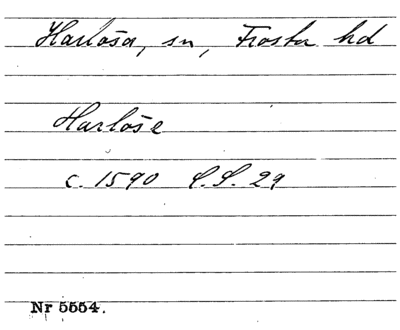 Harlösa, sn, Frosta hd
Harlöse
c. 1590 L.S. 29
Nr 5554.